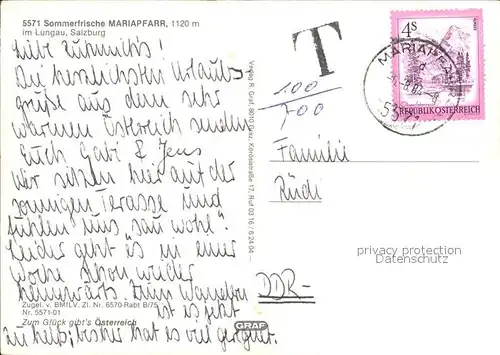 5571 Sommerfrische MARIAPFARR, 1120 m
im Lungau, Salzburg
Liebe
Die herzlichsten Urlaubs
grüße aus dem sehr
warmen Österreich senden
Euch Gabi & Jens
Wir sitzen hier auf der
sonnigen Terasse und
fühlen uns "sau wohl".
Leider geht's in einer
Woche schon wieder
heimwärts. Zum Wandern
ist es jetzt
zu heiß, bisher hat es viel geregnet.
Zugel. v. BMfLV. Zl. Nr. 6570-RabT B/75
Nr. 5571-01
Zum Glück gibt's Österreich
Verlag R. Graf, 8010 Graz, 17, Ruf 03 16 / 6 24 04
GRAF
T
100
700
4s
REPUBLIK ÖSTERREICH
MARIAPFARR
5571
Familie
Rüdi
DDR-
privacy protection
Datenschutz